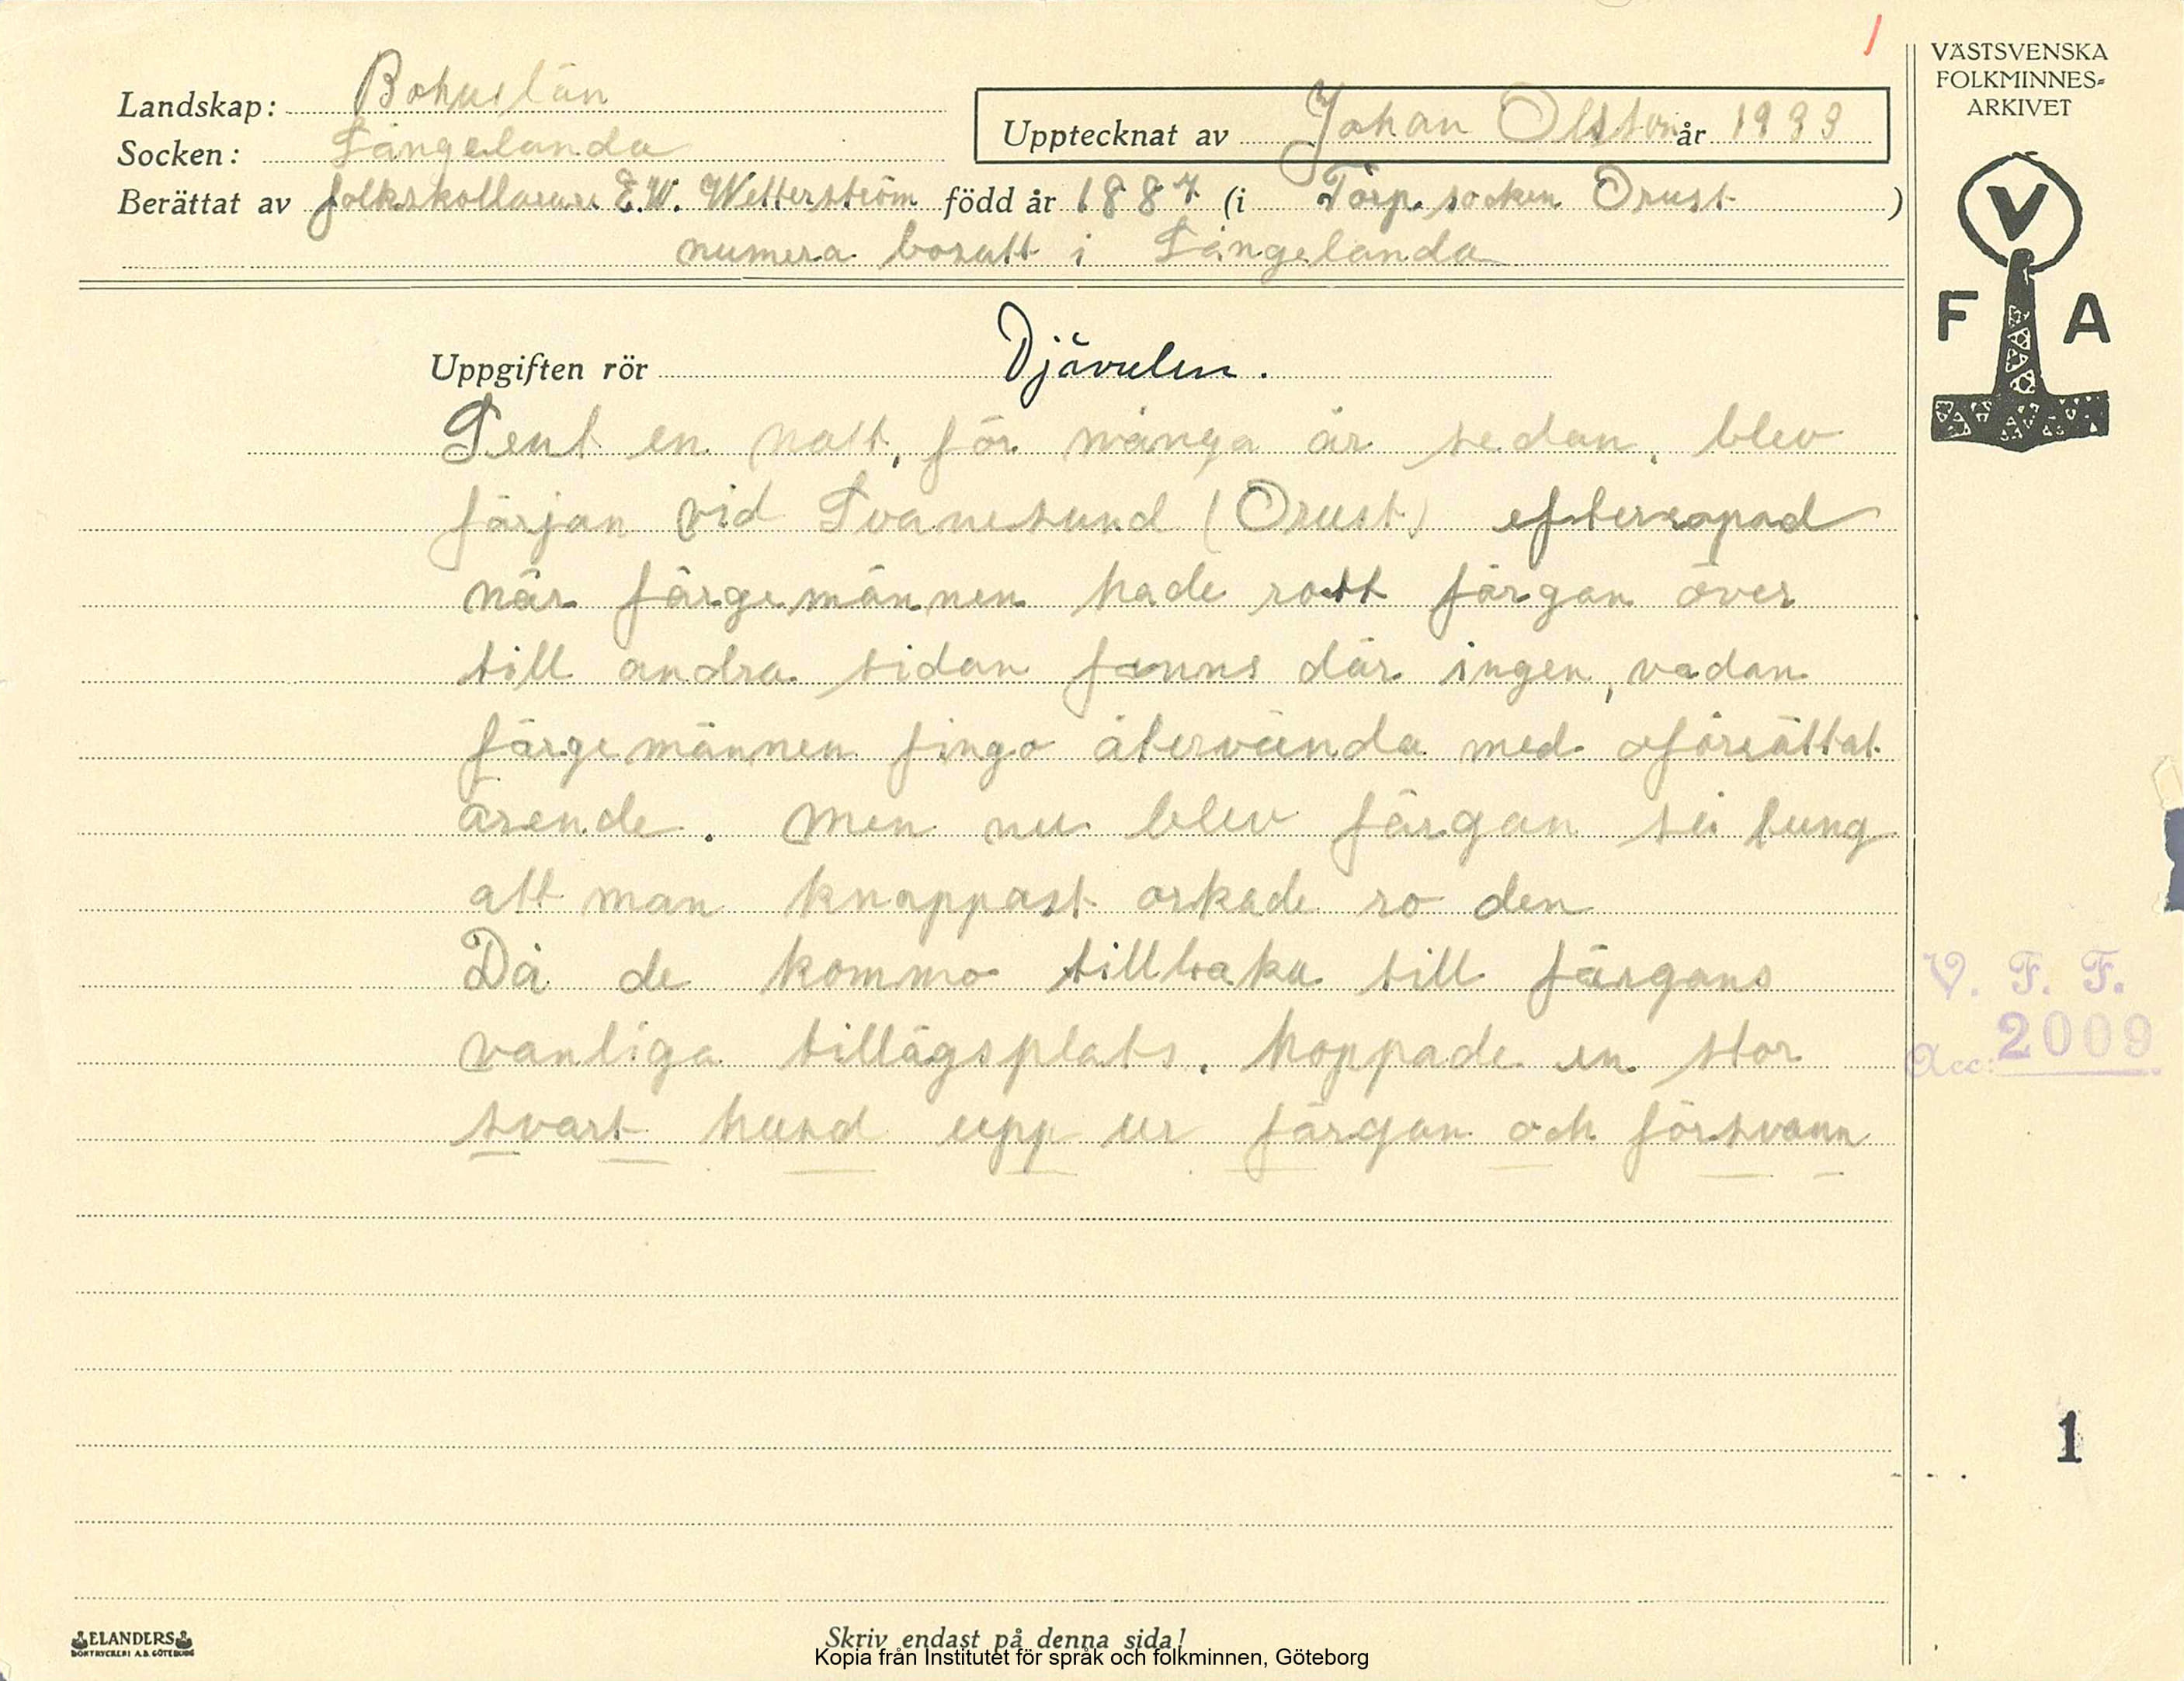 Landskap: Bohuslän
Socken: Långelanda
Upptecknat av Johan Olsson år 1933
Berättat av folkskollärare E.W. Wetterström född år 1887 (i Torp socken Orust )
numera bosatt i Långelanda
Uppgiften rör Djävulen.
Sent en natt, för många år sedan, blev
färjan vid Svanesund (Orust) efterropad
när färgemännen hade rott färgan över
till andra sidan fanns där ingen, vadan
färgemännen fingo återvända med oförrättat
ärende. Men nu blev färgan så tung
att man knappast orkade ro den
Då de kommo tillbaka till färgans
vanliga tillägsplats, hoppade en stor
svart hund upp ur färgan och försvann
Skriv endast på denna sida!
Kopia från Institutet för språk och folkminnen, Göteborg
ELANDERS
BOKTRYCKERI A.B. GÖTEBORG
VÄSTSVENSKA
FOLKMINNES=
ARKIVET
V
F A
V. F. F.
Acc: 2009
1